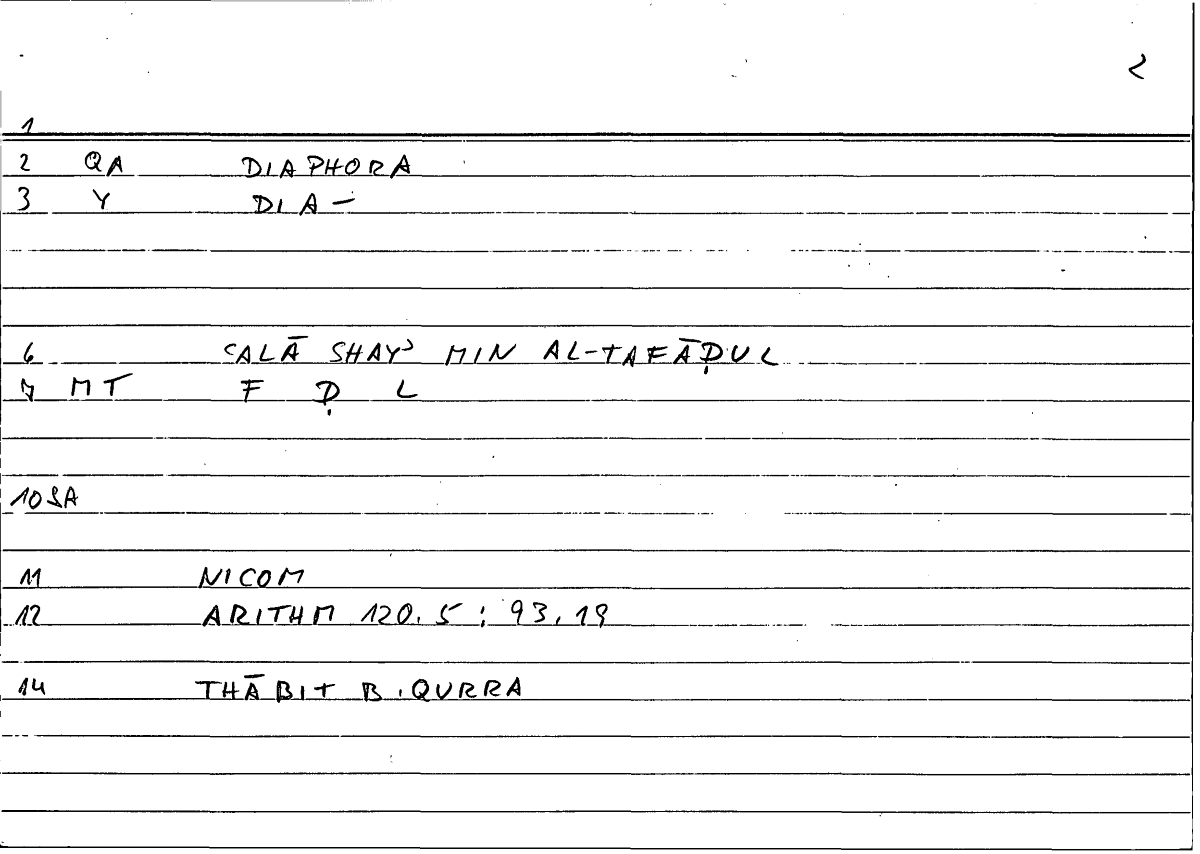 <
1
2 QA DIAPHORA
3 Y DIA-
6 ʿALĀ SHAYʾ MIN AL-TAFĀḌUL
7 MT F Ḍ L
10 SA
11 NICOM
12 ARITHM 120.5 ; 93.19
14 THĀBIT B. QURRA